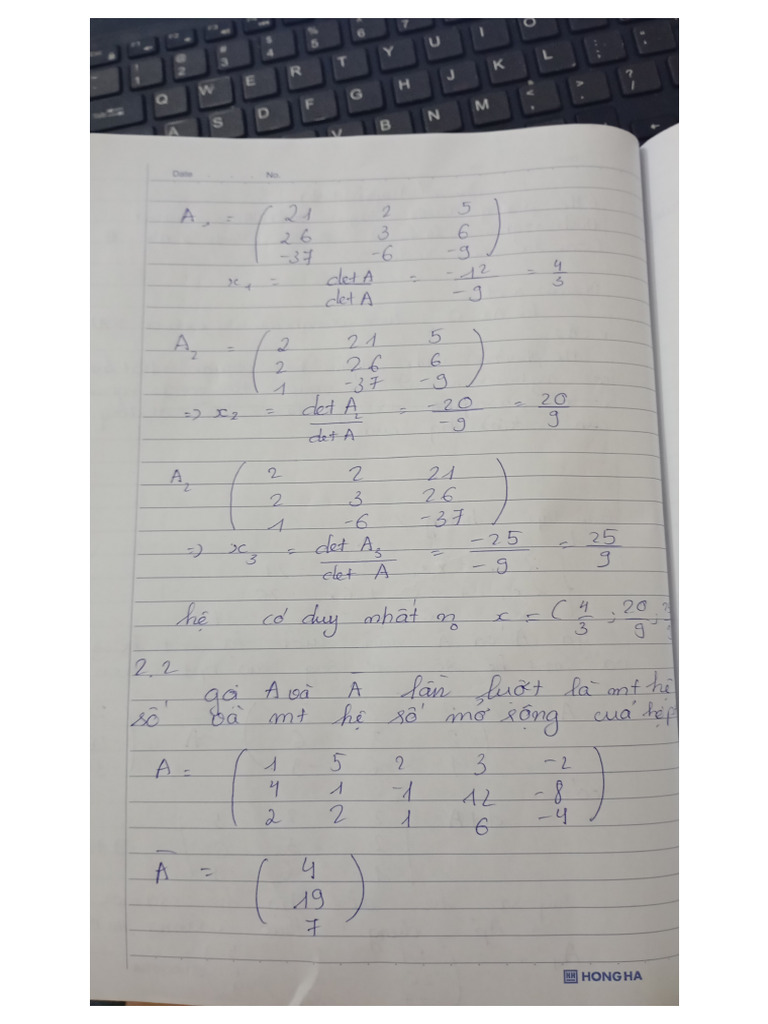 Q W E R T Y U I
A S D F G H J K L
V B N M
Date No.
A₁ = ( 21 2 5
26 3 6
-37 -6 -9 )
x₁ = det A / det A = -12 / -9 = 4/3
A₂ = ( 2 21 5
2 26 6
1 -37 -9 )
=> x₂ = det A₂ / det A = -20 / -9 = 20/9
A₂ ( 2 2 21
2 3 26
1 -6 -37 )
=> x₃ = det A₃ / det A = -25 / -9 = 25/9
hệ có duy nhất n₀ x = ( 4/3 ; 20/9 ;
2.2
gọi A và Ā lần lượt là mt hệ
số và mt hệ số mở rộng của hệ p
A = ( 1 5 2 3 -2
4 1 -1 12 -8
2 2 1 6 -4 )
Ā = ( 4
19
7 )
HONG HA